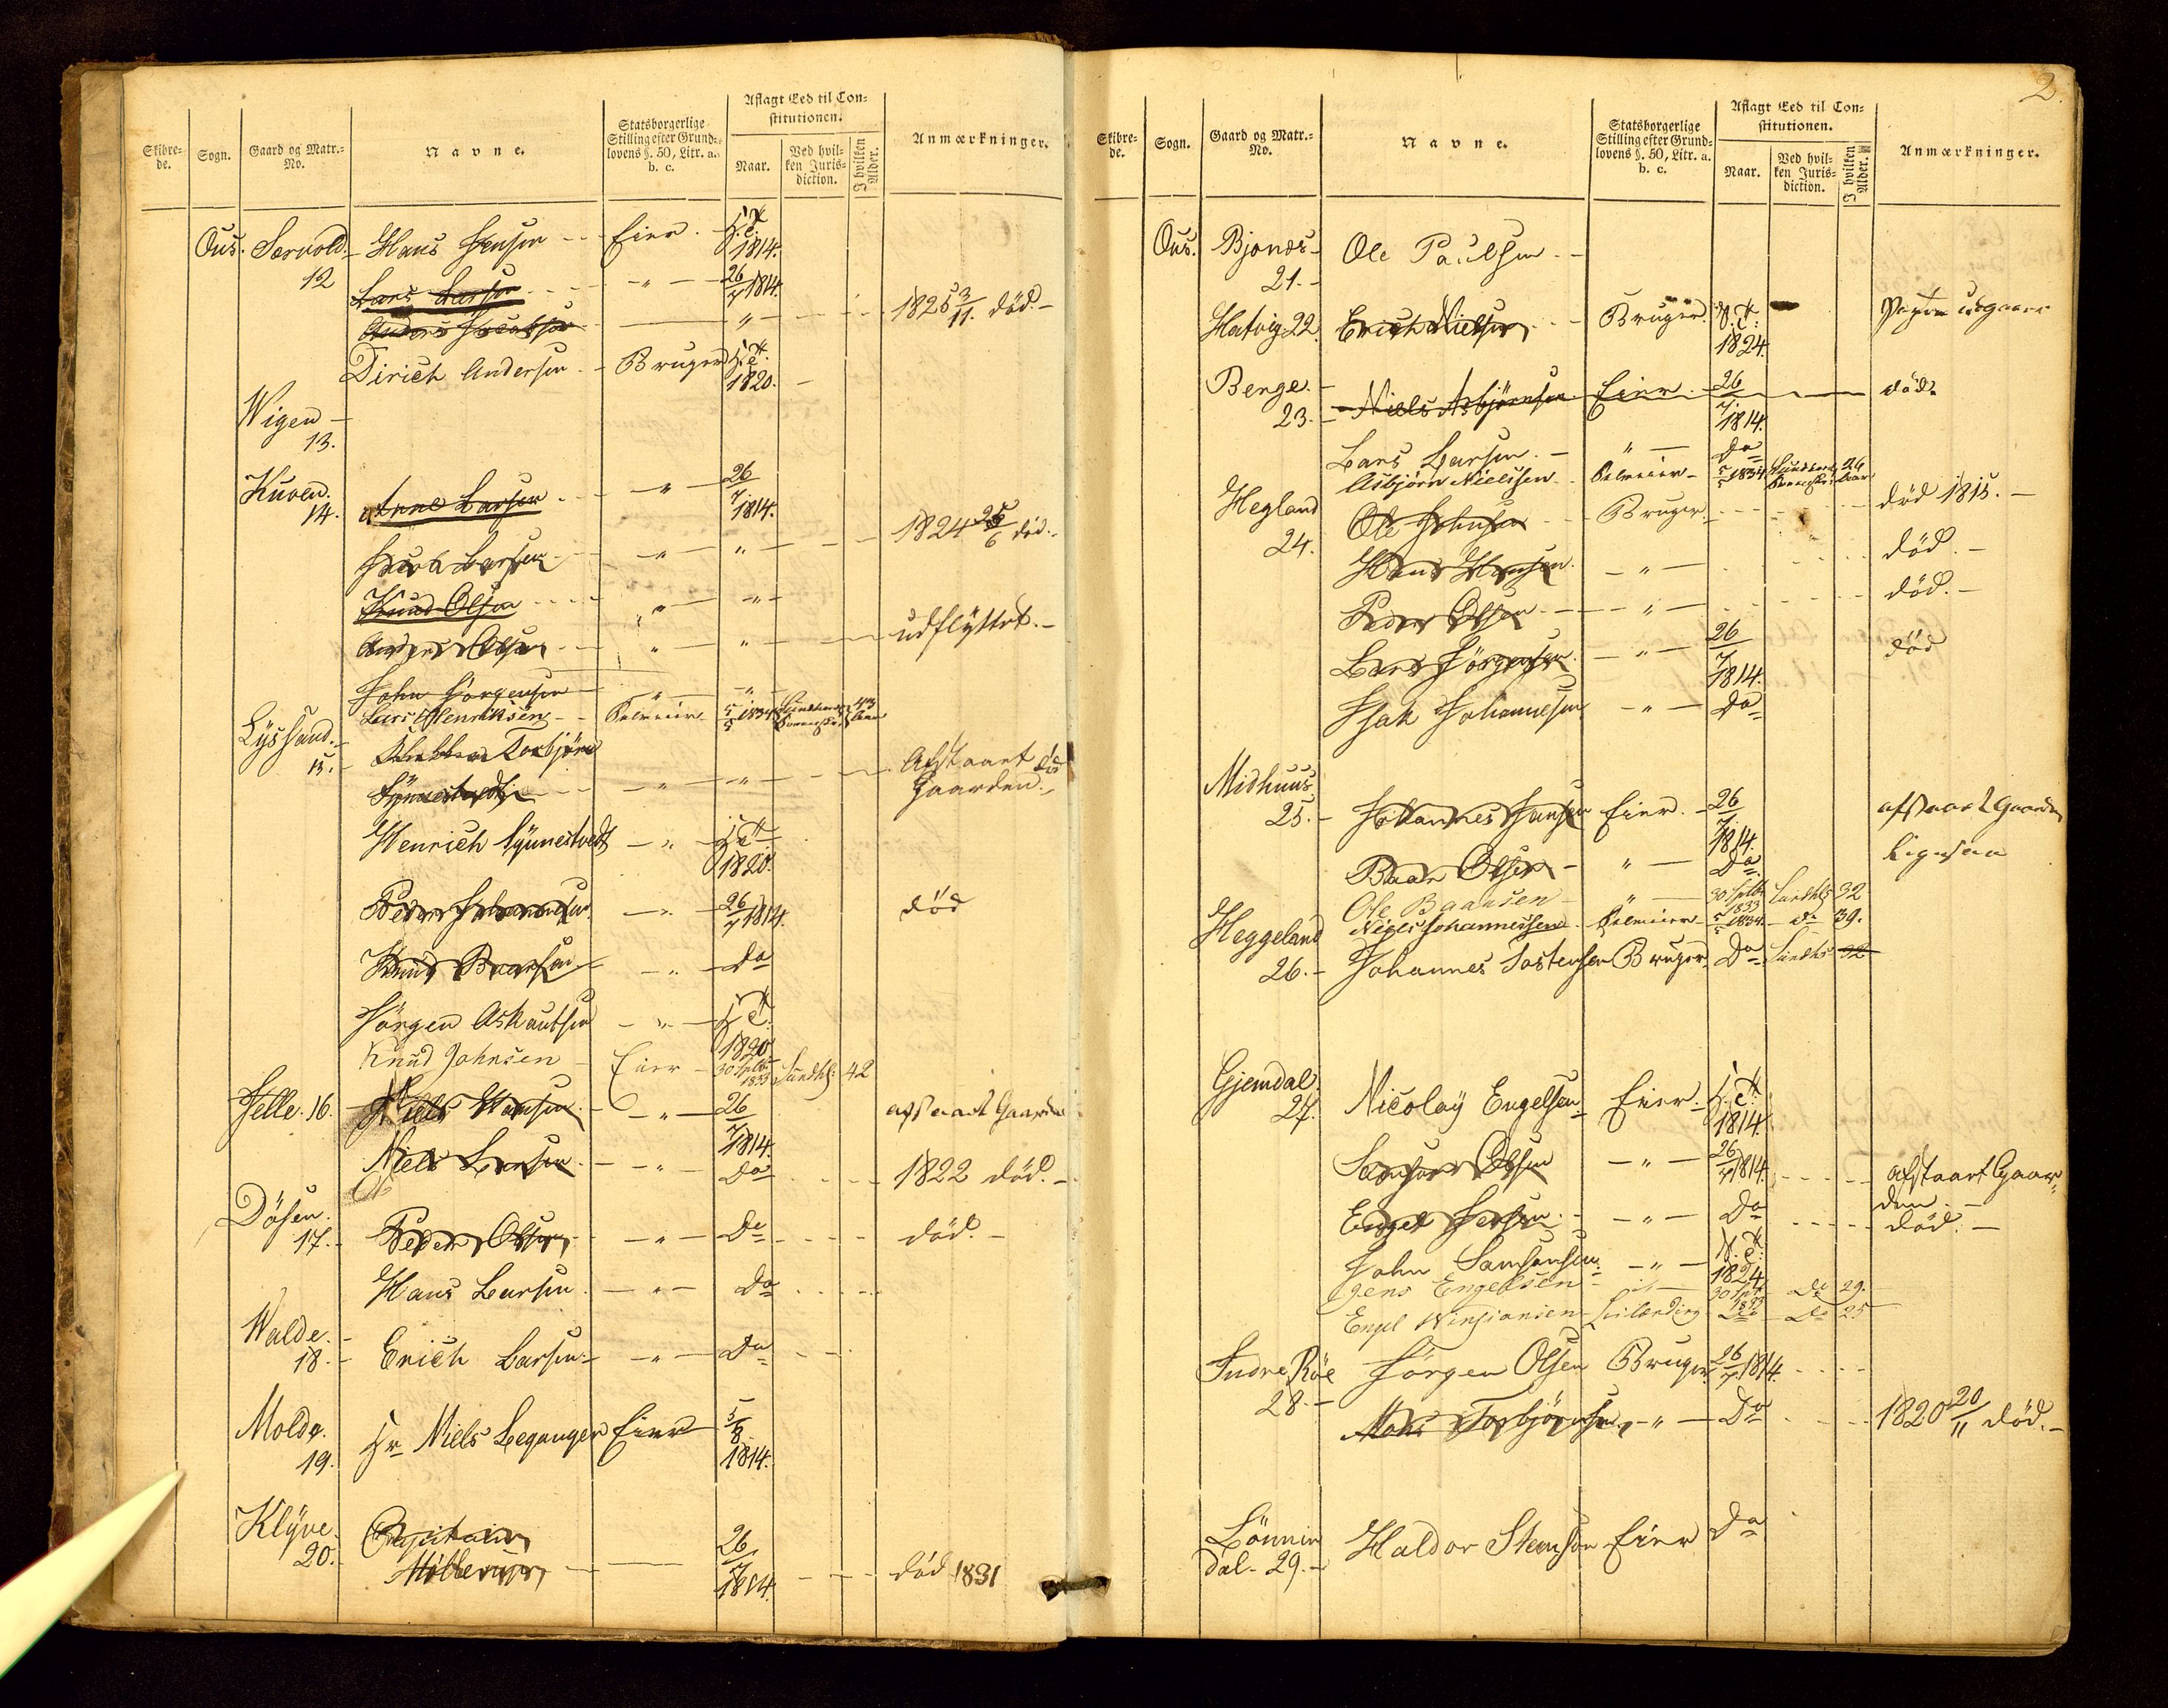 Skibre-
de.
Sogn.
Gaard og Matr.-
No.
Navne.
Statsborgerlige
Stilling efter Grund-
lovens §. 50, Litr. a.
b. c.
Aflagt Eed til Con-
stitutionen.
Naar.
Ved hvil-
ken Juris-
diction.
I hvilken
Alder.
Anmærkninger.
Ous. Særvold
12
Hans Jensen Eier
1814.
Lars Larsen " 26/7 1814.
Anders Jacobsen " 1825 3/11 død.
Dirich Andersen Bruger
1820.
Wigen
13.
Kuven.
14.
Arne Larsen " 26/7
1814.
Jacob Larsen " " 1824 25/6 død.
Knud Olsen " "
Anders Olsen " " udflyttet.
John Jörgensen " "
Lars Henriksen Selveier 5/5 1834 43
Lyssand.
15.
Torbjörn
Synnestvedt " " Afstaaet
Gaarden.
Henrich Synnestvedt "
1820.
Peder Johannesen " 26/7 1814. død
Knud Baarsen " Do
Jörgen Askautsen "
1820
Knud Johnsen Eier 30 Sptb: 1833 Sundhl: 42
Jelle. 16.
Niels Hansen " 26/7
1814.
afstaaet Gaarden
Niels Larsen " Do 1822 død.
Dösen.
17.
Peder Olsen " Do død.
Hans Larsen " Do
Walde.
18.
Erich Larsen " Do
Molde.
19.
Hr Niels Leganger Eier 5/8
1814.
Klyve.
20.
Capitain
Möllerup 26/7
1814.
død 1831
2.
Skibre-
de.
Sogn.
Gaard og Matr.-
No.
Navne.
Statsborgerlige
Stilling efter Grund-
lovens §. 50, Litr. a.
b. c.
Aflagt Eed til Con-
stitutionen.
Naar.
Ved hvil-
ken Juris-
diction.
I hvilken
Alder.
Anmærkninger.
Ous. Bjonæs
21.
Ole Paulsen
Hatvig 22. Erich Nielsen Bruger
1824.
Berge.
23.
Niels Asbjörnsen Eier 26/7
1814.
død.
Lars Larsen " Do
Asbjörn Nielssen Selveier 5/5 1834 26
Hegland
24.
Ole Johnsen Bruger død 1815.
Hans Hansen " død.
Peder Olsen " død.
Lars Jörgensen " 26/7
1814.
død
Isak Johannesen " Do
Midhuus
25.
Johannes Hansen Eier 26/7
1814.
afstaaet Gaarden
Baar Olsen " Do ligesaa
Ole Baarsen " 30 Sptb: 1833 Sundhl: 32
Niels Johannessen Selveier 5/5 1834 do 39.
Heggeland
26.
Johannes Tostensen Bruger Do Sundhl: 32
Gjemdal.
27.
Nicolay Engelsen Eier
1814.
Samson Olsen " 26/7 1814. afstaaet Gaar-
den.
Engel " Do død.
John Samsonsen "
1824
Jens Engelsen 30 Sptb 1833 Do 29.
Engel Do Do 25
Indre Röe
28.
Jörgen Olsen Bruger 26/7 1814.
Mons Torbjörnsen " Do 1820 20/11 død.
Lönnin
dal. 29.
Haldor Steenson Eier Do